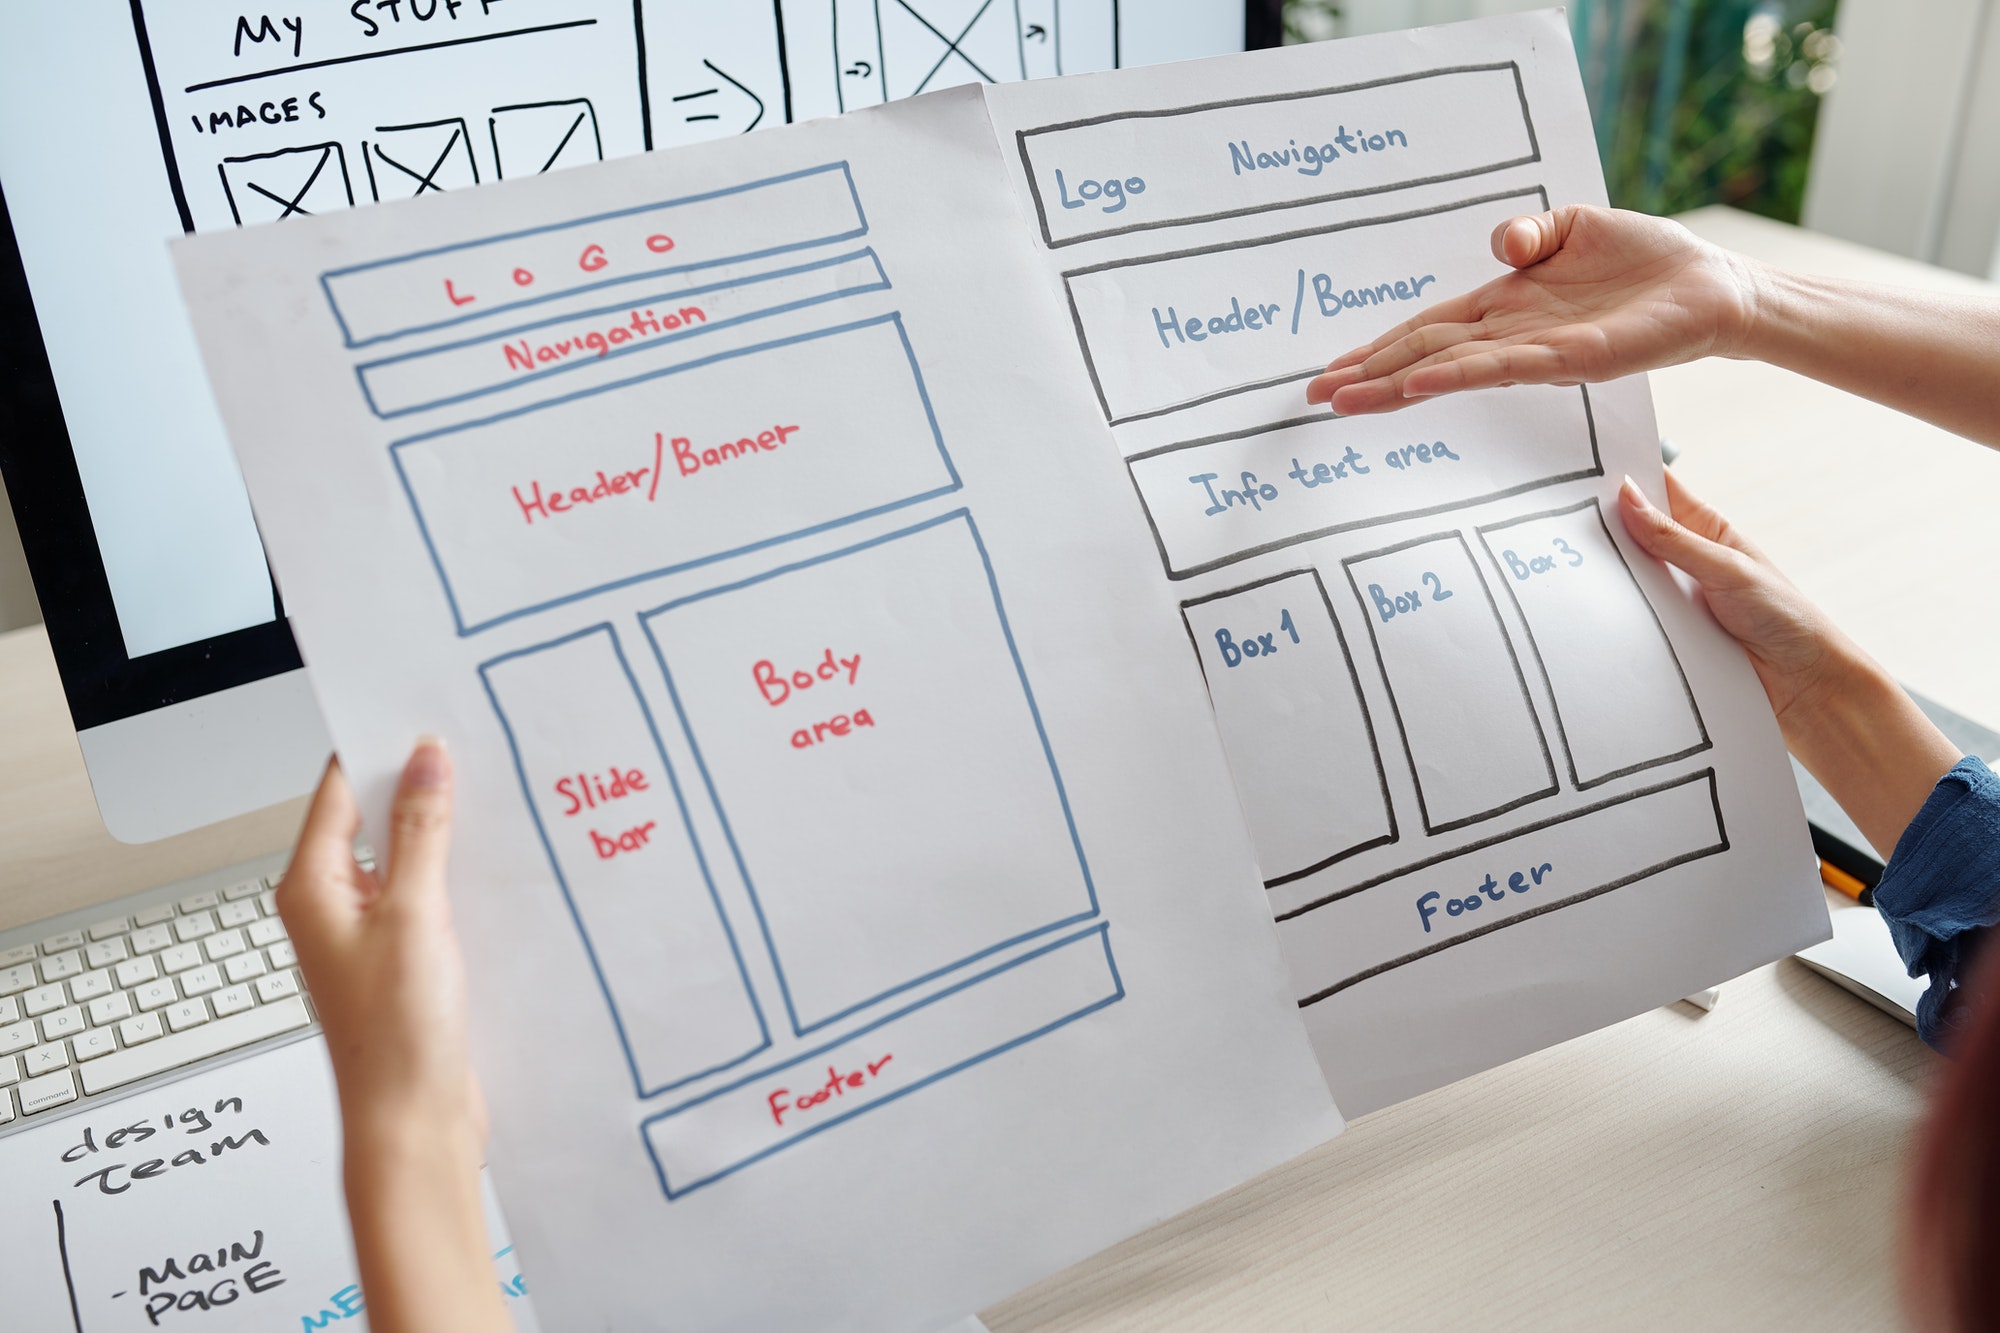 My STUFF
IMAGES
LOGO
Navigation
Header/Banner
Slide
bar
Body
area
Footer
Logo
Navigation
Header/Banner
Info text area
Box 1
Box 2
Box 3
Footer
design
Team
- MAIN
PAGE
command